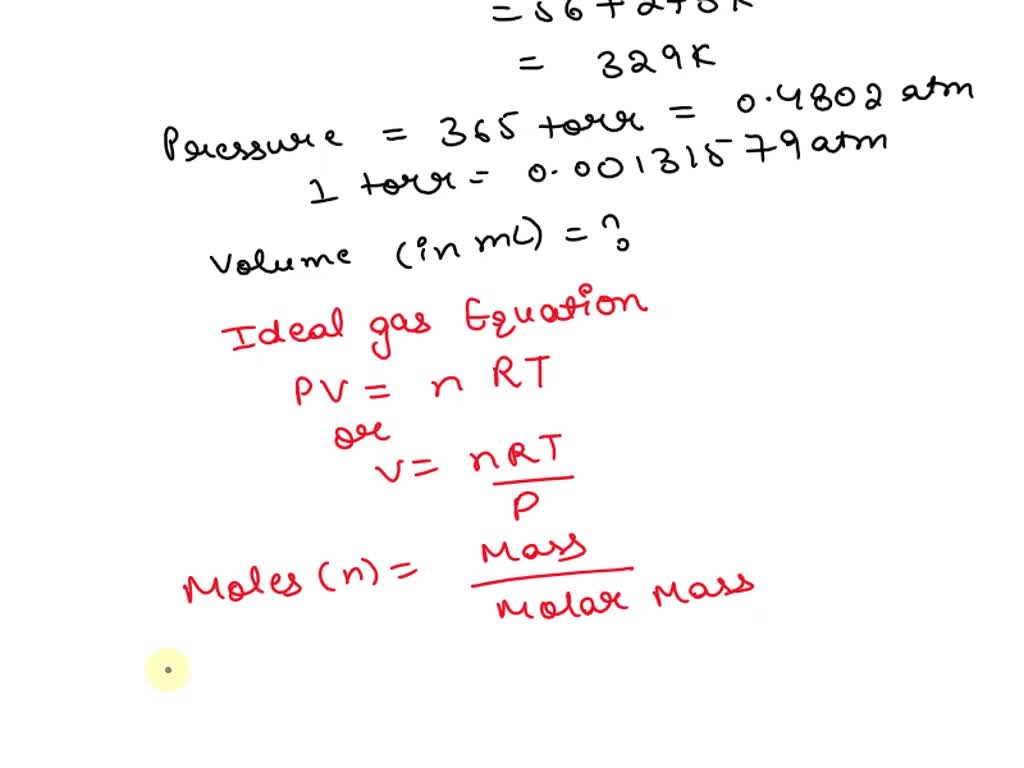 = 56 + 273 K
= 329K
Pressure = 365 torr = 0.4802 atm
1 torr = 0.00131579 atm
Volume (in mL) = ?
Ideal gas Equation
PV = n RT
or
V = nRT
P
Moles (n) = Mass
Molar Mass